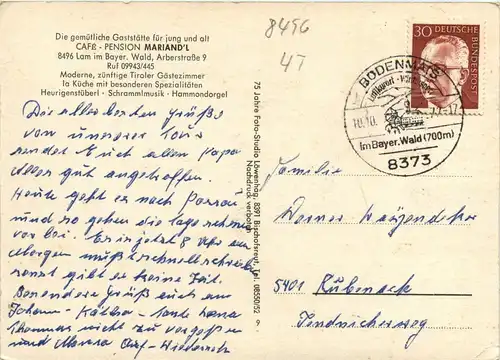 Die gemütliche Gaststätte für jung und alt
CAFE - PENSION MARIAND'L
8496 Lam im Bayer. Wald, Arberstraße 9
Ruf 09943/445
Moderne, zünftige Tiroler Gästezimmer
1a Küche mit besonderen Spezialitäten
Heurigenstüberl - Schrammlmusik - Hammondorgel
8496
4T
30 DEUTSCHE BUNDESPOST
BODENMAIS
Luftkurort
10.10.
-17
im Bayer. Wald (700m)
8373
Die allerbesten Grüße
von unserer Tour
sendet Euch allen Papa
alles gut angetroffen.
Heute geht es nach Passau
und so gehen die Tage schnell
vorbei. Es ist jetzt 8 Uhr am
Morgen muß schnell schreiben
sonst gibt es keine Zeit.
Besondere Grüße auch an
Johann - Käthe - Tante
nicht zu vergessen
und Auf-Wiederseh
75 Jahre Foto-Studio Löwenhag, 8391 Bischofsreut, Tel. 08550/52
Nachdruck verboten
9
Familie
Werner
5401 Rübenach